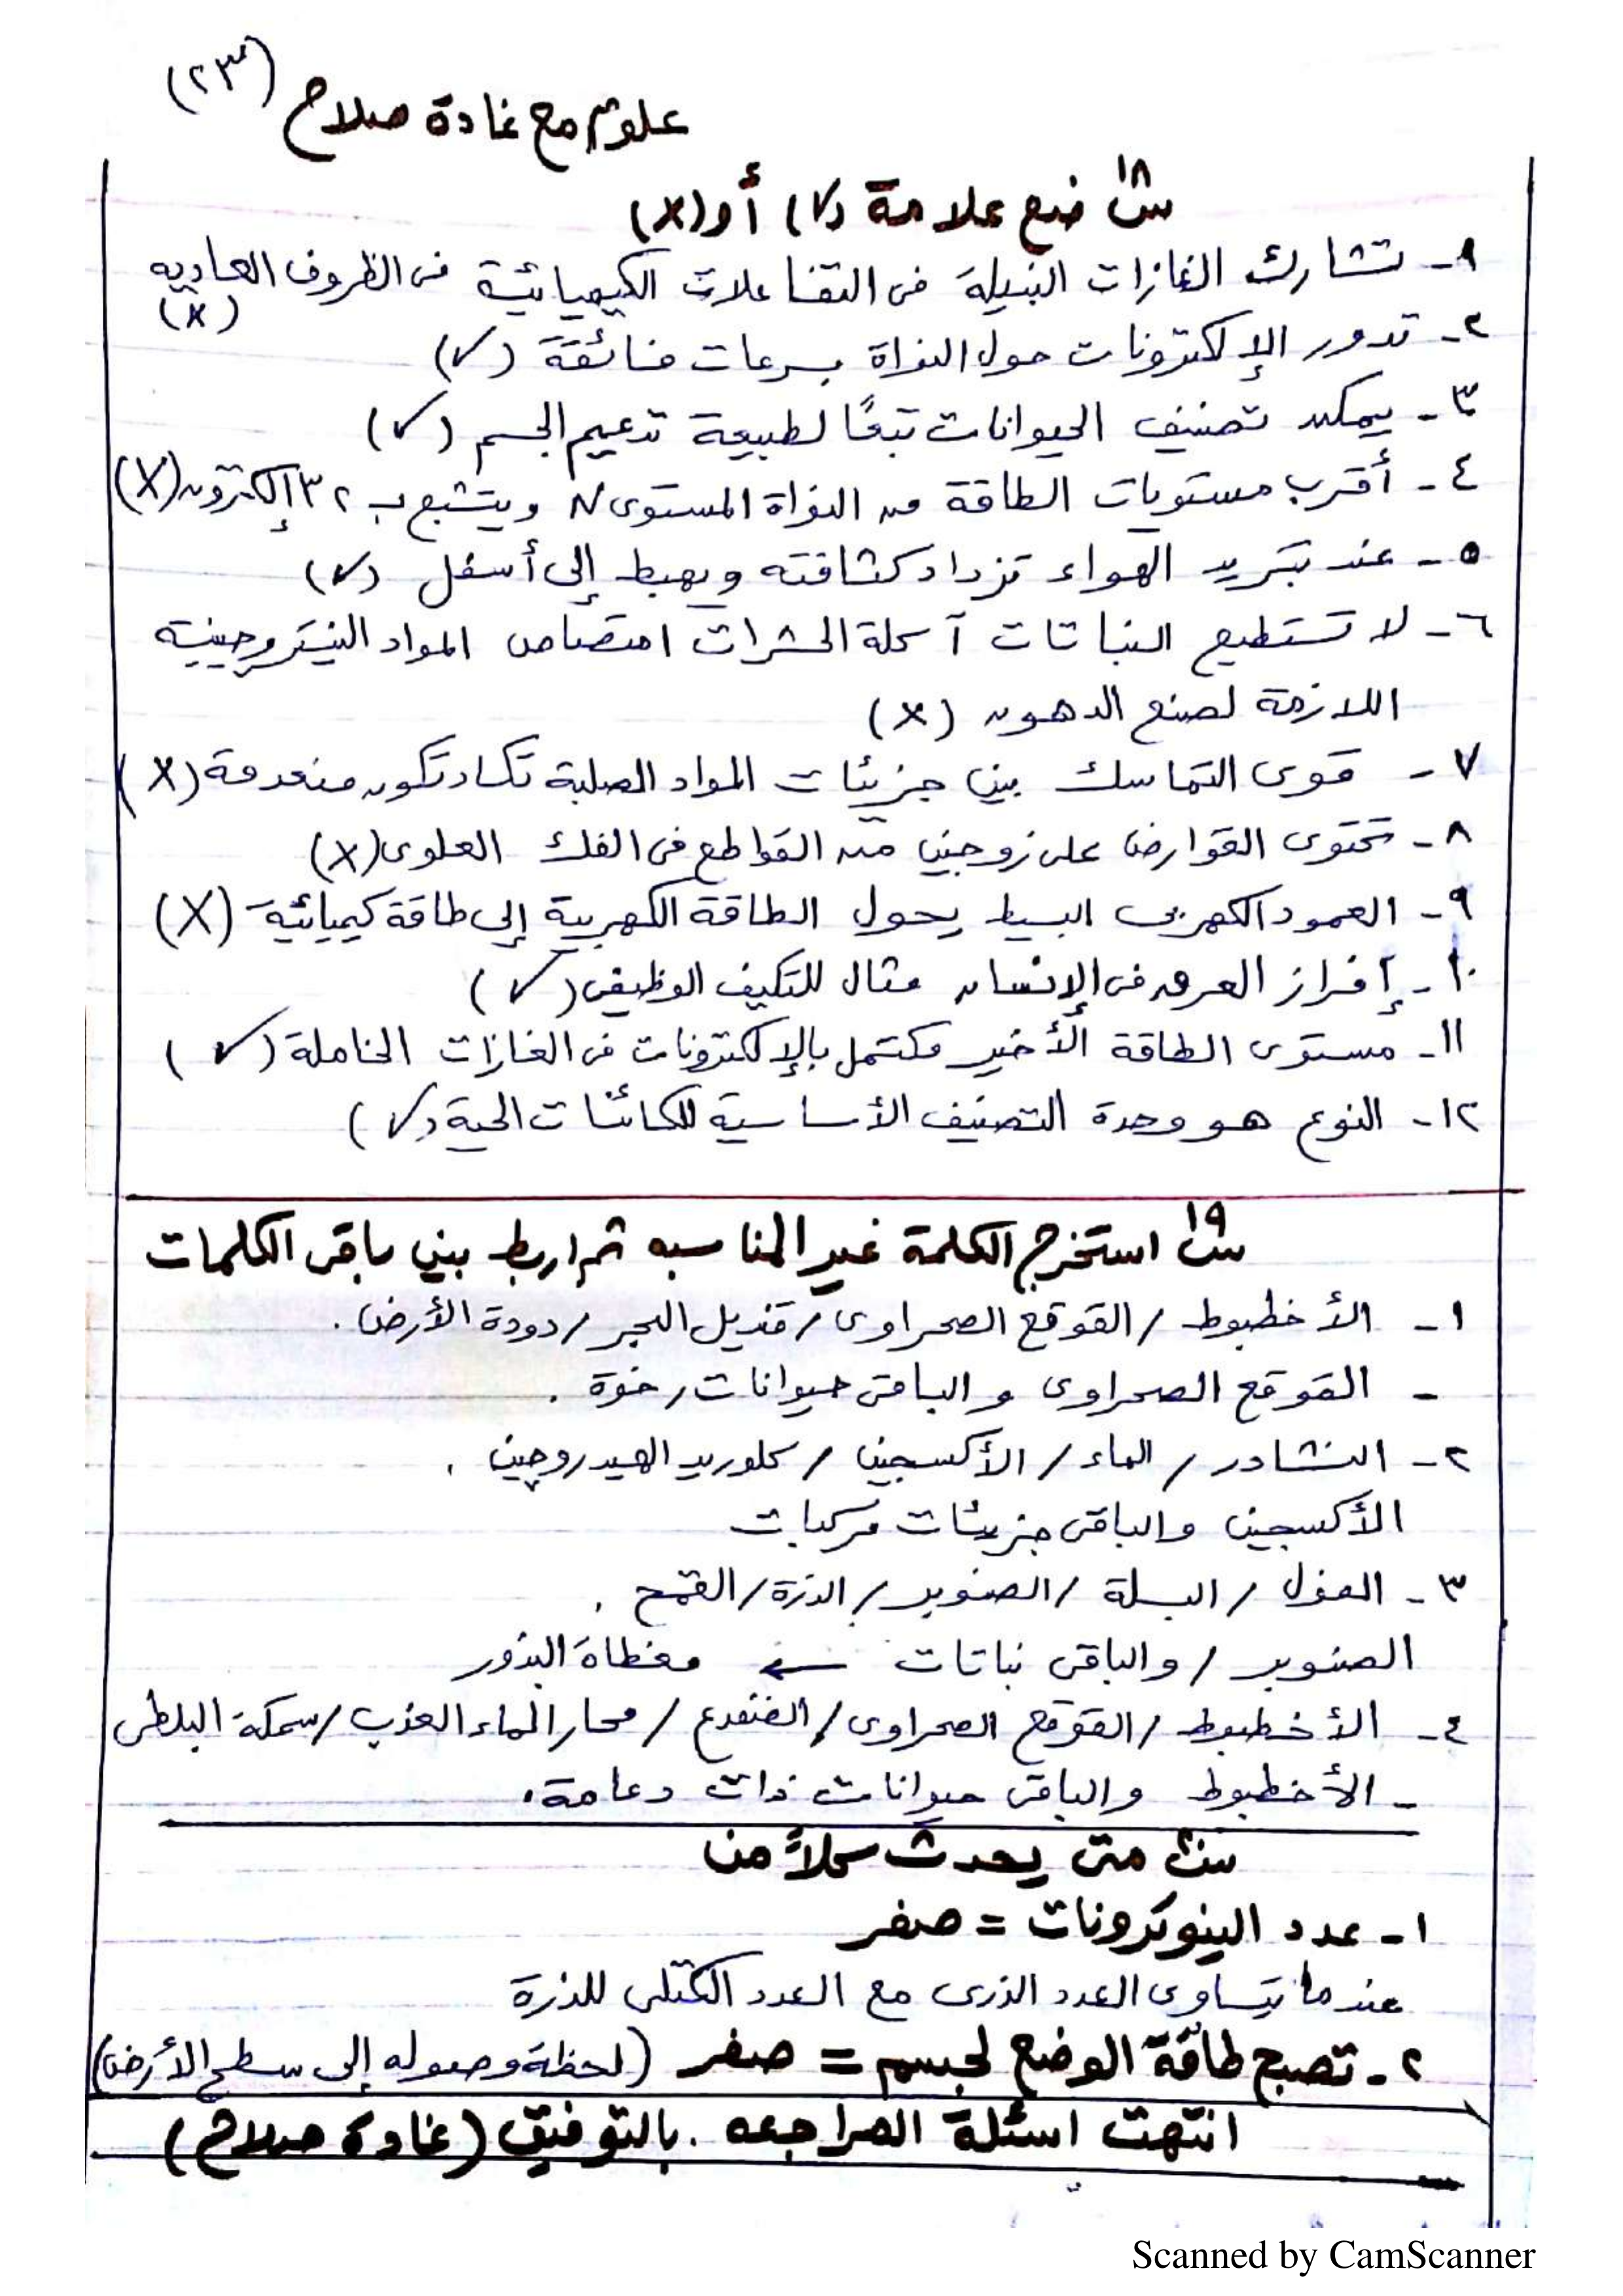 (٢٣)
علوم مع غادة صلاح
س١٨ ضع علامة (✓) أو (x)
١- تشارك الغازات النبيلة فى التفاعلات الكيميائية فى الظروف العاديه
(x)
٢- تدور الإلكترونات حول النواة بسرعات فائقة (✓)
٣- يمكن تصنيف الحيوانات تبعًا لطبيعة تدعيم الجسم (✓)
٤- أقرب مستويات الطاقة من النواة المستوى N ويتشبع بـ ٣٢ إلكترون (X)
٥- عند تبريد الهواء تزداد كثافته ويهبط إلى أسفل (✓)
٦- لا تستطيع النباتات آكلة الحشرات امتصاص المواد النيتروجينية
اللازمة لصنع الدهون (x)
٧- قوى التماسك بين جزيئات المواد الصلبة تكاد تكون منعدمة (X)
٨- تحتوى القوارض على زوجين من القواطع فى الفك العلوى (x)
٩- العمود الكهربى البسيط يحول الطاقة الكهربية إلى طاقة كيميائية (X)
١٠- إفراز العرق فى الإنسان مثال للتكيف الوظيفى (✓)
١١- مستوى الطاقة الأخير مكتمل بالإلكترونات فى الغازات الخاملة (✓)
١٢- النوع هو وحدة التصنيف الأساسية للكائنات الحية (✓)
س١٩ استخرج الكلمة غير المناسبه ثم اربط بين باقى الكلمات
١- الأخطبوط / القوقع الصحراوى / قنديل البحر / دودة الأرض .
- القوقع الصحراوى والباقى حيوانات رخوة .
٢- النشادر / الماء / الأكسجين / كلوريد الهيدروجين .
الأكسجين والباقى جزيئات مركبات
٣- الفول / البسلة / الصنوبر / الذرة / القمح .
الصنوبر / والباقى نباتات ← مغطاة البذور
٤- الأخطبوط / القوقع الصحراوى / الضفدع / محار الماء العذب / سمكة البلطى
- الأخطبوط والباقى حيوانات ذات دعامة .
س٢٠ متى يحدث كلاً من
١- عدد النيوترونات = صفر
عندما يتساوى العدد الذرى مع العدد الكتلى للذرة
٢- تصبح طاقة الوضع لجسم = صفر (لحظة وصوله إلى سطح الأرض)
انتهت اسئلة المراجعه . بالتوفيق (غادة صلاح)
Scanned by CamScanner